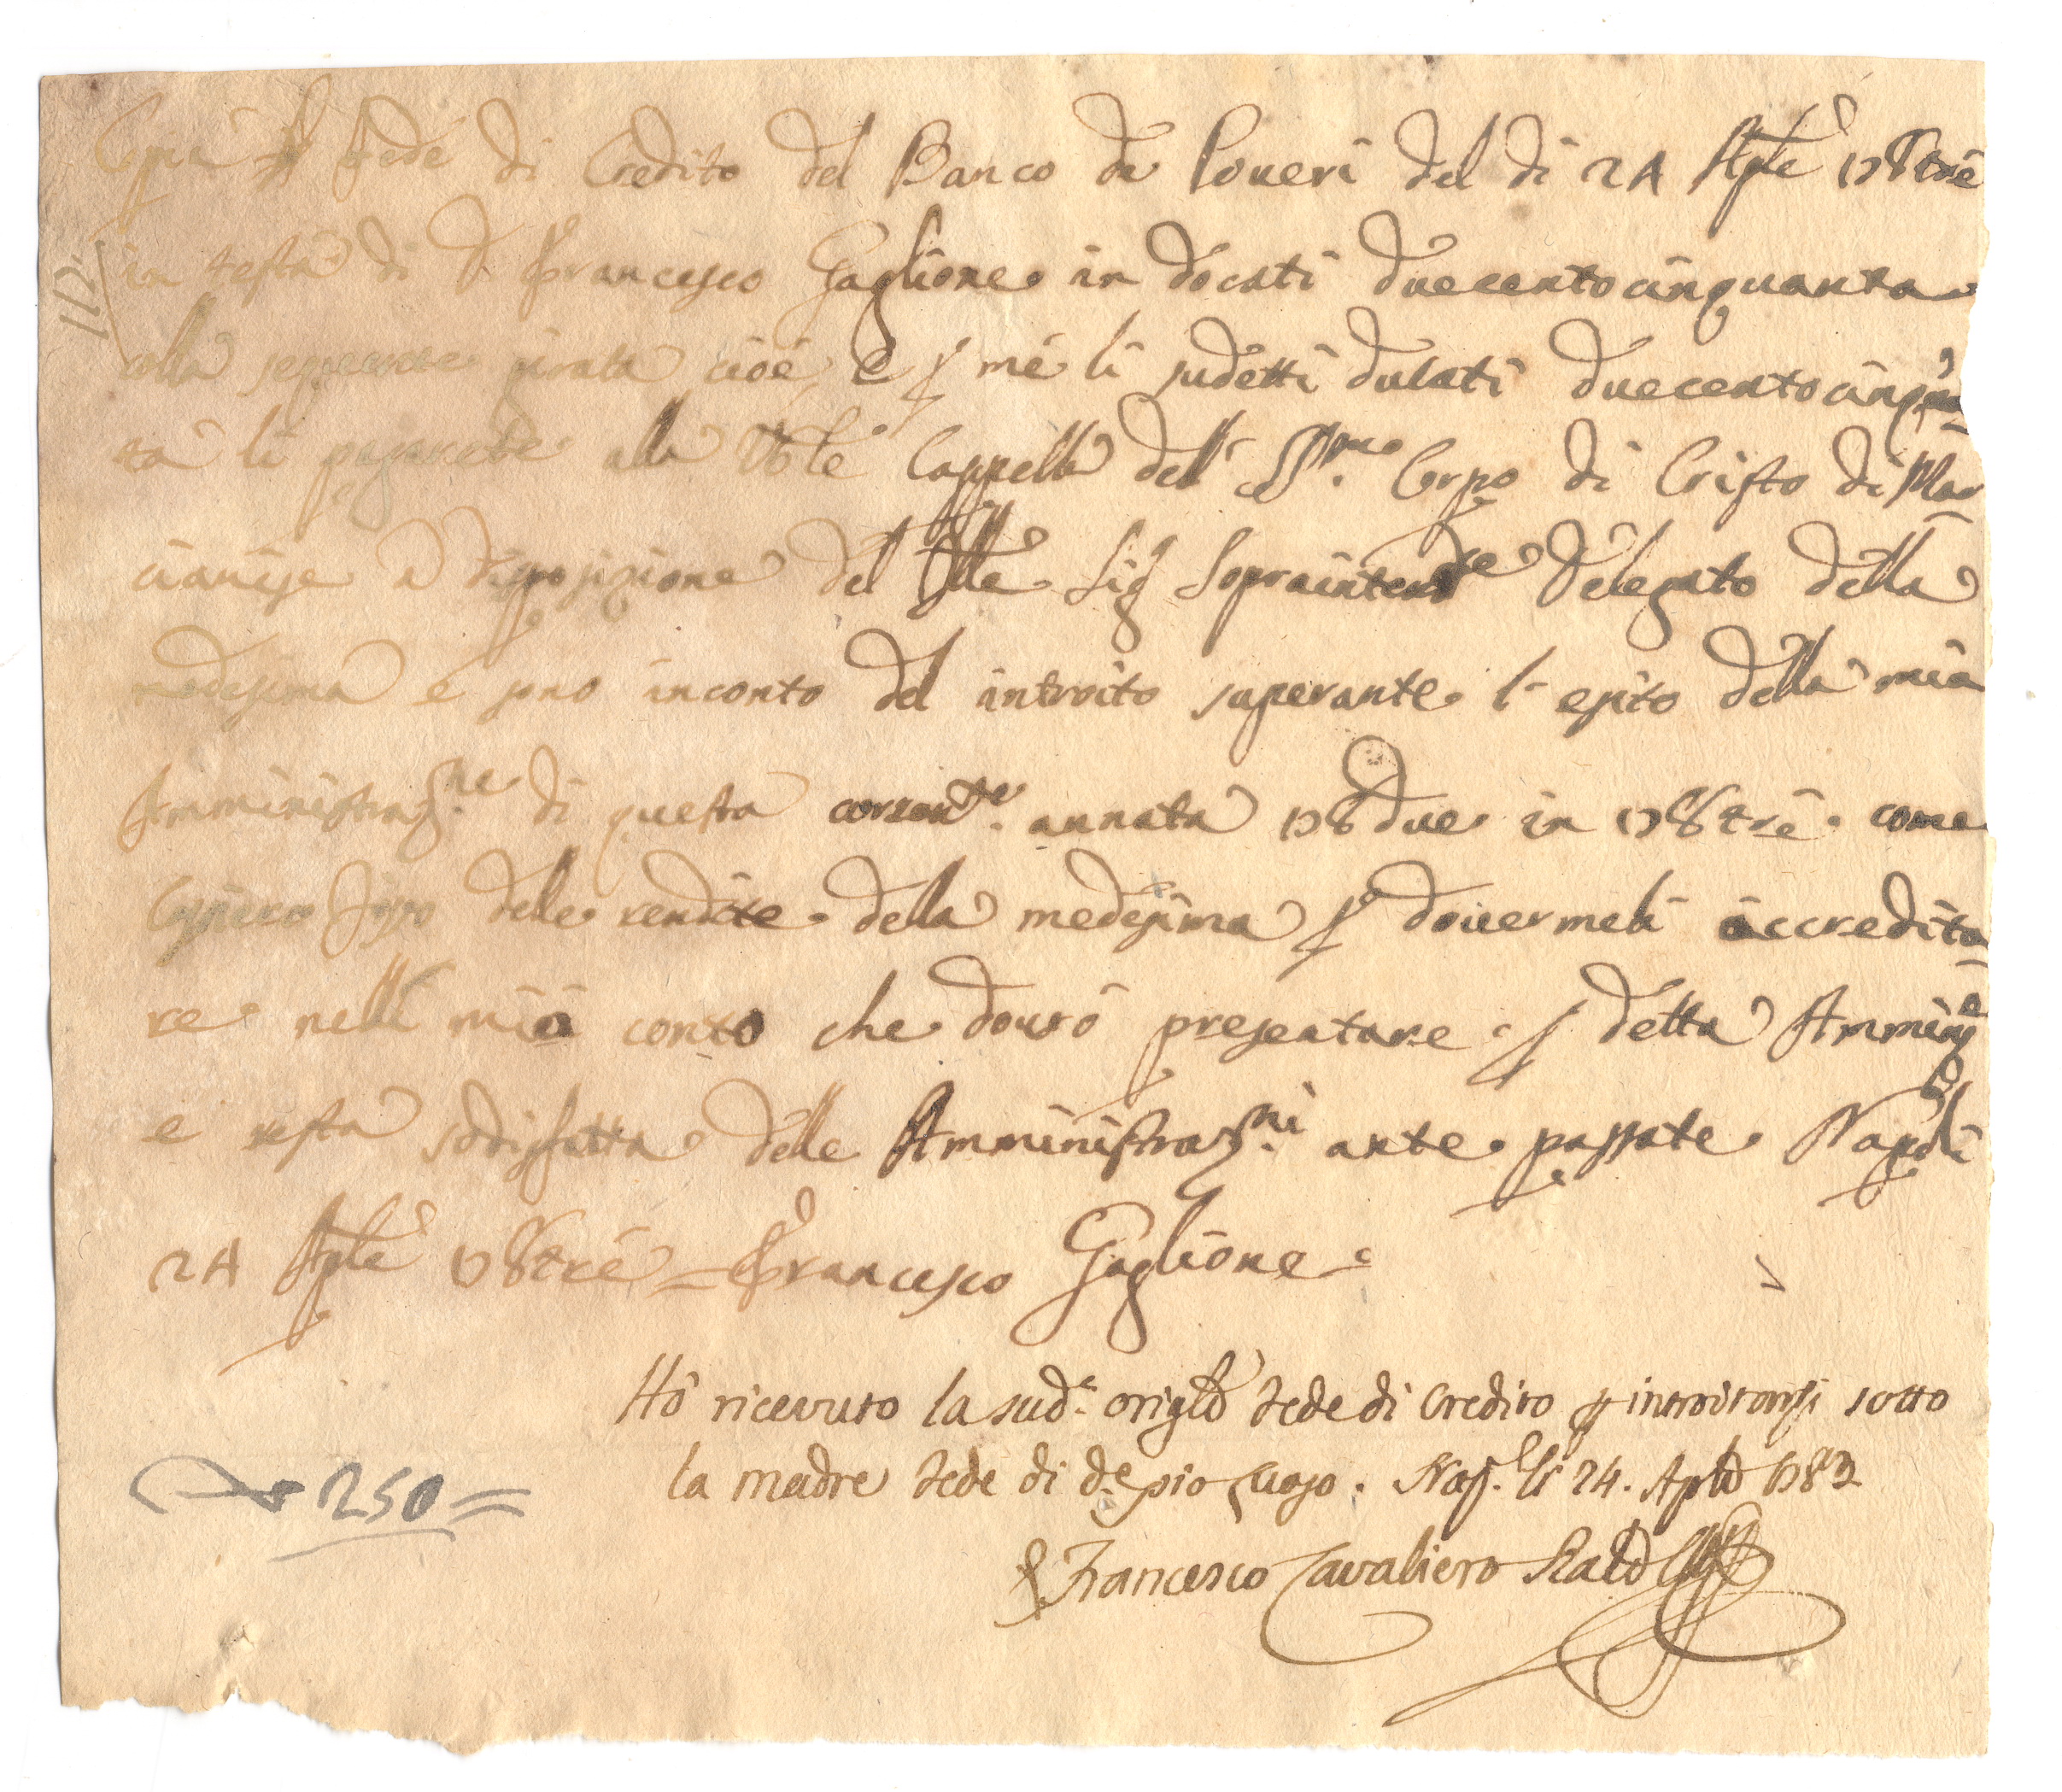 Copia di fede di Credito del Banco de Poveri del di 24 Aple 178tre
112.
in testa di D. Francesco Gaglione in docati duecentocinquanta
colla seguente girata cioè, e p me li sudetti ducati duecentocinquan
ta li pagarete alla Vble Cappella del SSmo Corpo di Cristo di Mar
cianise a disposizione del Ille Sig Sopraintendte Delegato della
medesima e sono inconto del introito superante l'esito della mia
Amministrazne di questa corrente annata 178due in 178tre come
delle rendite della medesima p dovermeli accredita
re nelli miei conto che dovrò presentare p detta Amminne
e resta sodisfatta delle Amministrazni ante passate Napoli
24 Aple 178tre = Francesco Gaglione
Hò ricevuto la suda origle fede di Credito p introitarsi sotto
la madre fede di do pio luogo. Nap. li 24. Aple 1783
250 =
Francesco Cavaliero Razle